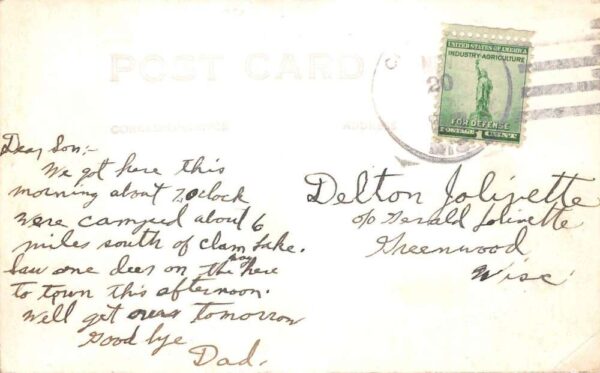 POST CARD
CORRESPONDENCE
ADDRESS
UNITED STATES OF AMERICA
INDUSTRY-AGRICULTURE
FOR DEFENSE
POSTAGE 1 CENT
20
WIS
Dear Son:-
We got here this
morning about 7 oclock
were camped about 6
miles south of clam Lake.
Saw one deer on the way here
to town this afternoon.
Well get ours tomorrow
Good bye
Dad.
Delton Jolivette
c/o Gerald Jolivette
Greenwood
Wisc